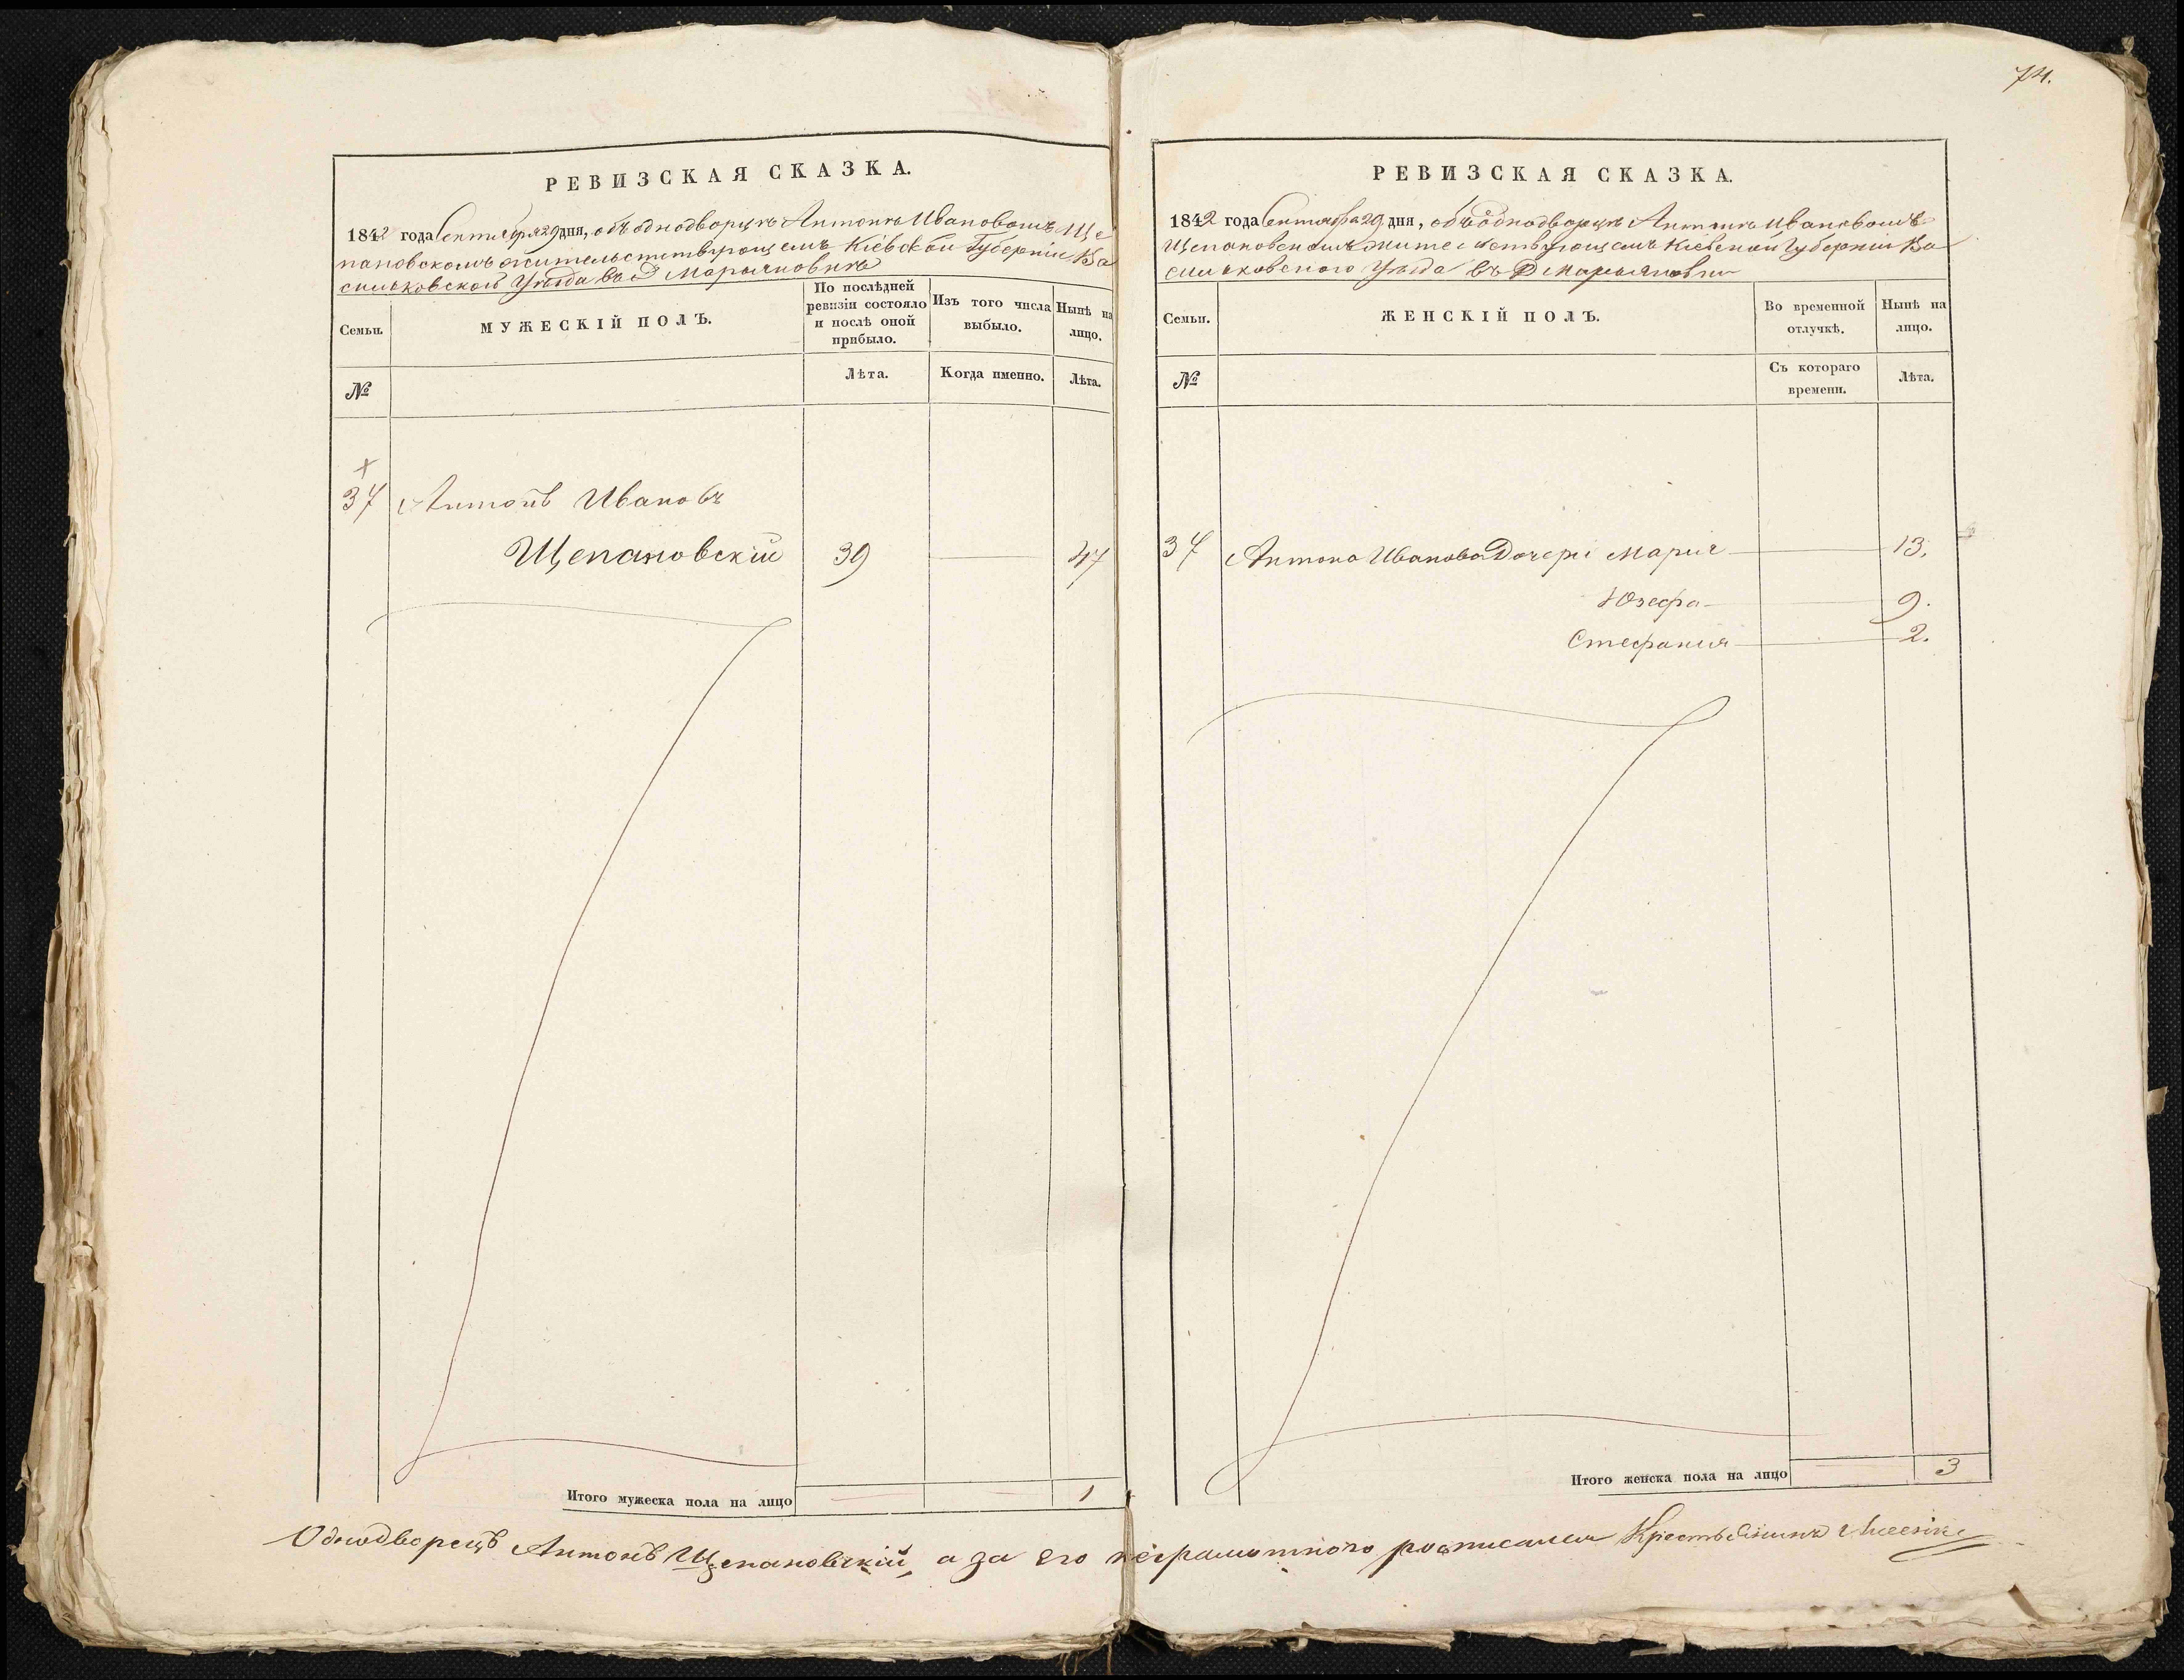 74.
РЕВИЗСКАЯ СКАЗКА.
1842 года Сентября 29 дня, объ однодворцѣ Антонѣ Ивановомъ Ще
пановскомъ жительствующемъ Кіевской Губерніи Ва
сильковскаго Уѣзда въ Д Марьяновкѣ
Семьи.
МУЖЕСКІЙ ПОЛЪ.
По послѣдней
ревизіи состояло
и послѣ оной
прибыло.
Изъ того числа
выбыло.
Нынѣ на
лицо.
№
Лѣта.
Когда именно.
Лѣта.
37 Антонъ Ивановъ
Щепановскій 39 47
Итого мужеска пола на лицо 1
РЕВИЗСКАЯ СКАЗКА.
1842 года Сентября 29 дня, объ однодворцѣ Антонѣ Ивановомъ
Щепановскомъ жительствующемъ Кіевской Губерніи Ва
сильковскаго Уѣзда въ Д Марьяновки
Семьи.
ЖЕНСКІЙ ПОЛЪ.
Во временной
отлучкѣ.
Нынѣ на
лицо.
№
Съ котораго
времени.
Лѣта.
37 Антона Иванова Дочери Марія 13.
Юзефа 9.
Стефания 2.
Итого женска пола на лицо 3
Однодворецъ Антонъ Щепановскій, а за его неграмотного росписался Крестьянинъ